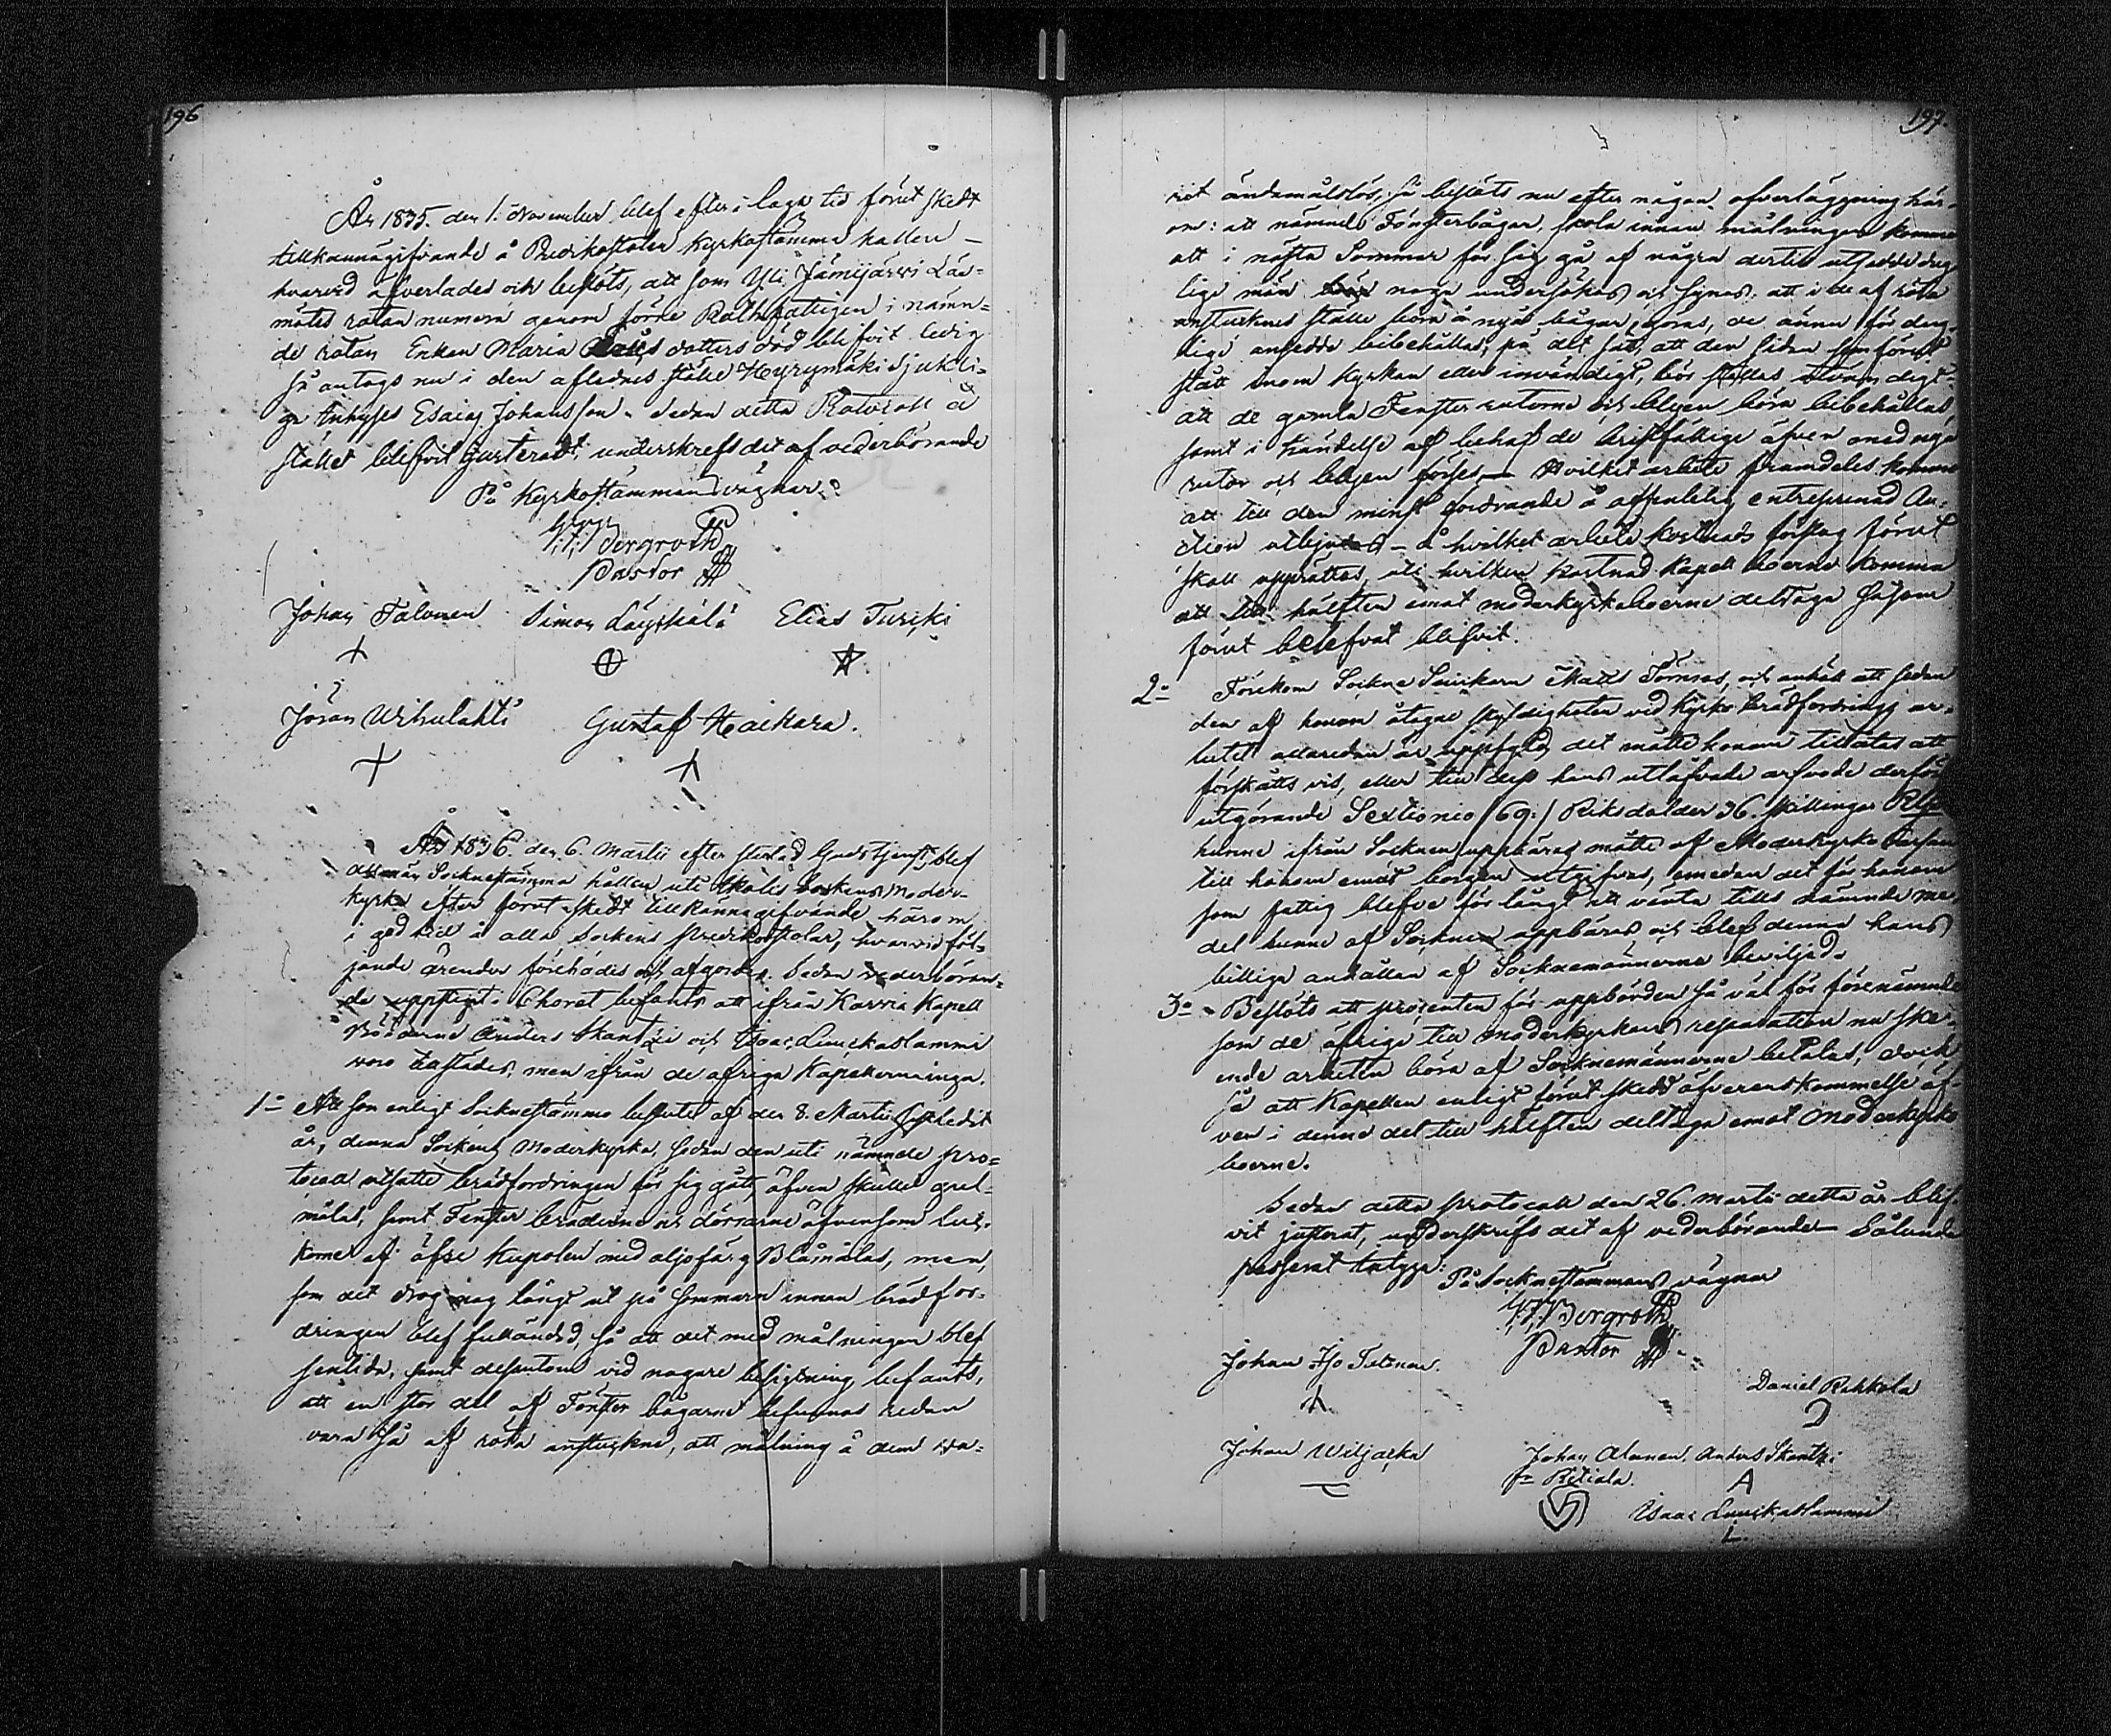 196
År 1835. den 1. November, blef efter i laga tid förut skedt
tillkännagifvande å Predikostolen Kyrkostämma hallen –
hvarvid öfverlades och beslöts, att som Yli Jämijärvi Län-
mäles rotan numera genom förre Rothfattigen i nämn-
de rotan Enkan Maria dotters död blifvit ledig
så antogs nu i den aflednes ställe Heyrymäki sjukli-
ge Inhyses Esaias Johansson. Sedan detta Protocoll å
stället blifvit justeradt, underskrefs det af vederbörande
På Kyrkostämmans vägnar:
Bergroth
Pastor
Johan Talonen Simon Läyskälä Elias Turiki
Jöran Wihulahti Gustaf Haikara.
År 1836. den 6. Martii efter slutad Gudstjenst, blef
allmän Socknestämma hållen uti Ikalis Sockens Moder-
kyrka efter förut skedt tillkännagifvande härom
i god tid å alla Sockens Predikostolar, hvarvid föl-
jande ärender förehades och afgjordes. Sedan vederböran-
de uppstigit i Choret befants att ifrån Karvia Kapell
Bönderne Anders Skantzi och Isaac Luuskaslammi
woro tillstädes, men ifrån de öfriga Kapellerna inga.
1o Att som enligt Socknestämmo beslutet af den 8. Martii sistledit
år, denna Sockens Moderkyrka, sedan den uti nämnde pro-
tocoll utsatte brädfordringen för sig gått, äfven skulle gul-
målas, samt Fenster bräderne och dörrarne äfvensom luc-
korne af öfre Kupolen med oljofärg Blåmålas, men,
som det drog nog långt ut på Sommaren innan brädfor-
dringen blef fulländad, så att det med målningen blef
sentida, samt dessutom vid nogare besigtning befants,
att en stor del af Fönster bågarne befunnos redan
vara så af röta anstuckne, att målning å dem wa-
197.
rit ändamålslös; så beslöts nu efter någon öfverläggning här-
om: att nämnde Fönsterbågar, skola innan målningen kommer
att i nästa Sommar för sig gå af några dertill utsedde dug-
lige män noga undersökas och synas, att i de af röta
anstucknes ställe böra å nyo bågar göras, de ännu för dug-
lige ansedde bibehållas, på det sätt, att den sidan som förut
stått inom Kyrkan eller invändigt, bör ställas utvändigt,
att de gamla Fenster rutorne och blyen böra bibehållas,
samt i händelse af behof de bristfällige äfven med nya
rutor och blyen förses, – Hvilket arbete framdeles kommer
att till den minst fordrande å offentelig entreprenad Au-
ction utbjudas – å hvilket arbete kostnads förslag förut
skall upprättas, uti hvilken kostnad Kapell boerne komma
att till hälften emot moderkyrkoboerne deltaga såsom
förut belefvat blifvit.
2o Förekom Sockne Snickaren Matts Törnroos, och anhöll att sedan
den af honom åtagne skyldigheten vid Kyrko brädfordrings ar-
betet allaredan är uppfyld, det måtte honom tillåtas att
förskotts vis, eller till dess hans utlofvade arfvode derför
utgörande Sextionio /69:/ Riksdalder 36. skillingar Rgs
kunne ifrån Socknen uppbäras måtte af Moderkyrko Cassan
till honom emot borgen utgifvas, emedan det för honom
som fattig blefve för långt att vänta tills nämnde me-
del kunne af Socknen uppbäras och blef denna hans
billiga anhållan af Socknemännerne beviljad.
3o Beslöts att procenten för uppbörden så väl för förenämnde
som de öfriga till moderkyrkans reparation nu ske-
ende arbeten böra af Socknemännerne betalas, dock
så att Kapellen enligt förut skedd öfverenskommelse äf-
ven i denne del till hälften deltaga emot Moderkyrko
boerne.
Sedan detta Protocoll den 26 Martii detta år blif-
vit justerat, underskrifs det af vederbörande. Sålunda
passerat intyga:
På Socknestämmans vägnar
Bergroth
Pastor
Johan Iso Turonen.
Daniel Rikkola
Johan Wiljaska
Johan Alanen Anders Skantzi
fr. Riitiala.
A
Isaac Luuskaslammi
L.